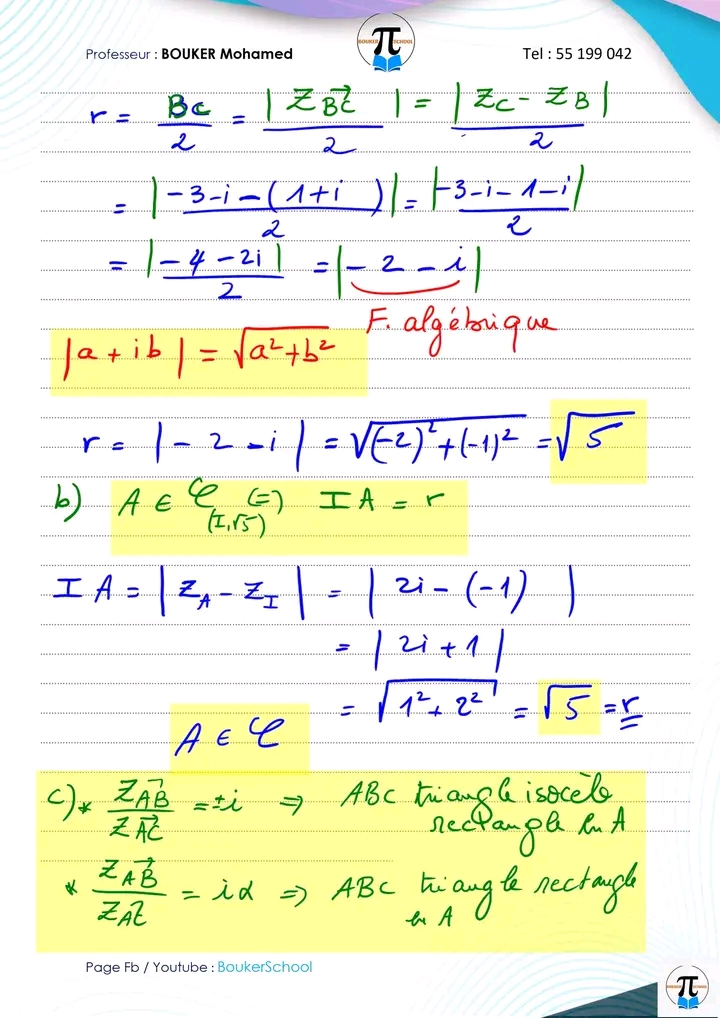 Professeur : BOUKER Mohamed
BOUKER π SCHOOL
Tel : 55 199 042
r = BC/2 = |Z_{\vec{BC}}|/2 = |Z_C - Z_B|/2
= |-3-i-(1+i)|/2 = |-3-i-1-i|/2
= |-4-2i|/2 = |-2-i|
F. algébrique
|a+ib| = √(a²+b²)
r = |-2-i| = √((-2)²+(-1)²) = √5
b) A ∈ 𝒞(I,√5) (=) IA = r
IA = |Z_A - Z_I| = |2i-(-1)|
= |2i+1|
= √(1²+2²) = √5 = r
A ∈ 𝒞
c) * Z_{\vec{AB}}/Z_{\vec{AC}} = ±i ⇒ ABC triangle isocèle
rectangle en A
* Z_{\vec{AB}}/Z_{\vec{AC}} = iα ⇒ ABC triangle rectangle
en A
Page Fb / Youtube : BoukerSchool
BOUKER π SCHOOL